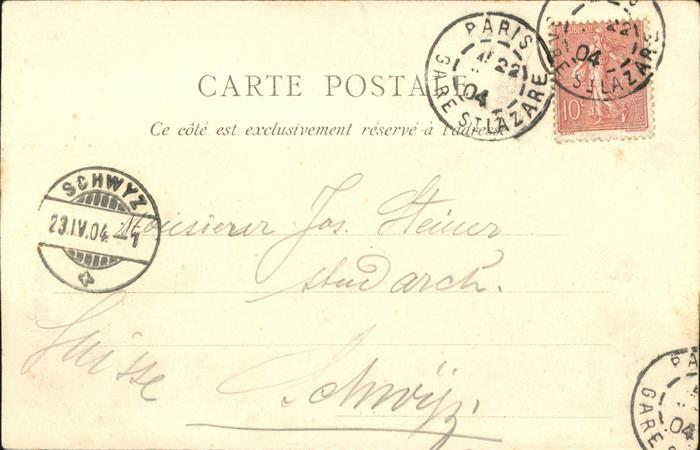 CARTE POSTALE
Ce côté est exclusivement réservé à l'adresse
PARIS
22
04
GARE ST LAZARE
22
04
GARE ST LAZARE
10c
SCHWYZ
23.IV.04.–1
Monsieur Jos. Steiner
stud arch.
Suisse
Schwÿz
PA
04
GARE